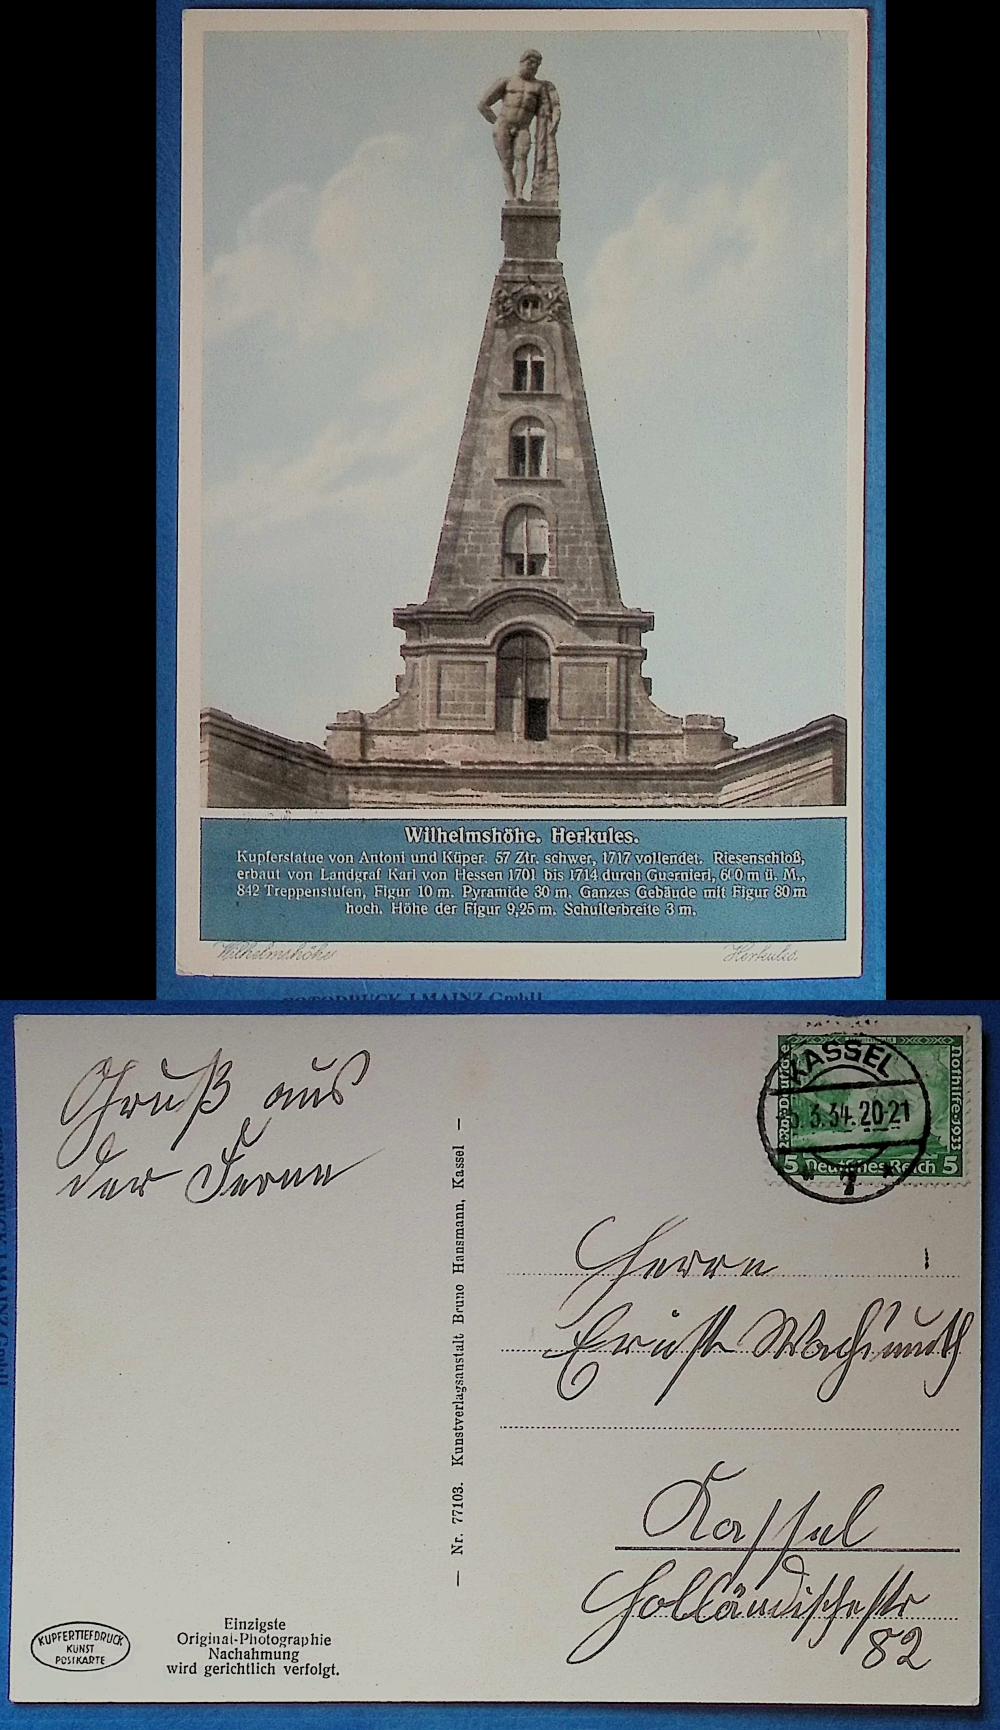 Wilhelmshöhe. Herkules.
Kupferstatue von Antoni und Küper. 57 Ztr. schwer, 1717 vollendet. Riesenschloß,
erbaut von Landgraf Karl von Hessen 1701 bis 1714 durch Guernieri, 600 m ü. M.,
842 Treppenstufen, Figur 10 m. Pyramide 30 m. Ganzes Gebäude mit Figur 80 m
hoch. Höhe der Figur 9,25 m. Schulterbreite 3 m.
Wilhelmshöhe Herkules.
FOTODRUCK J.MAINZ GmbH
Gruß aus
der Ferne
KASSEL
3.34.20-21
7
Nothilfe·1933
5 Deutsches Reich 5
Herrn
Ernst Wachsmuth
Kassel
Holländischestr
82
— Nr. 77103. Kunstverlagsanstalt Bruno Hansmann, Kassel —
KUPFERTIEFDRUCK
KUNST
POSTKARTE
Einzigste
Original-Photographie
Nachahmung
wird gerichtlich verfolgt.